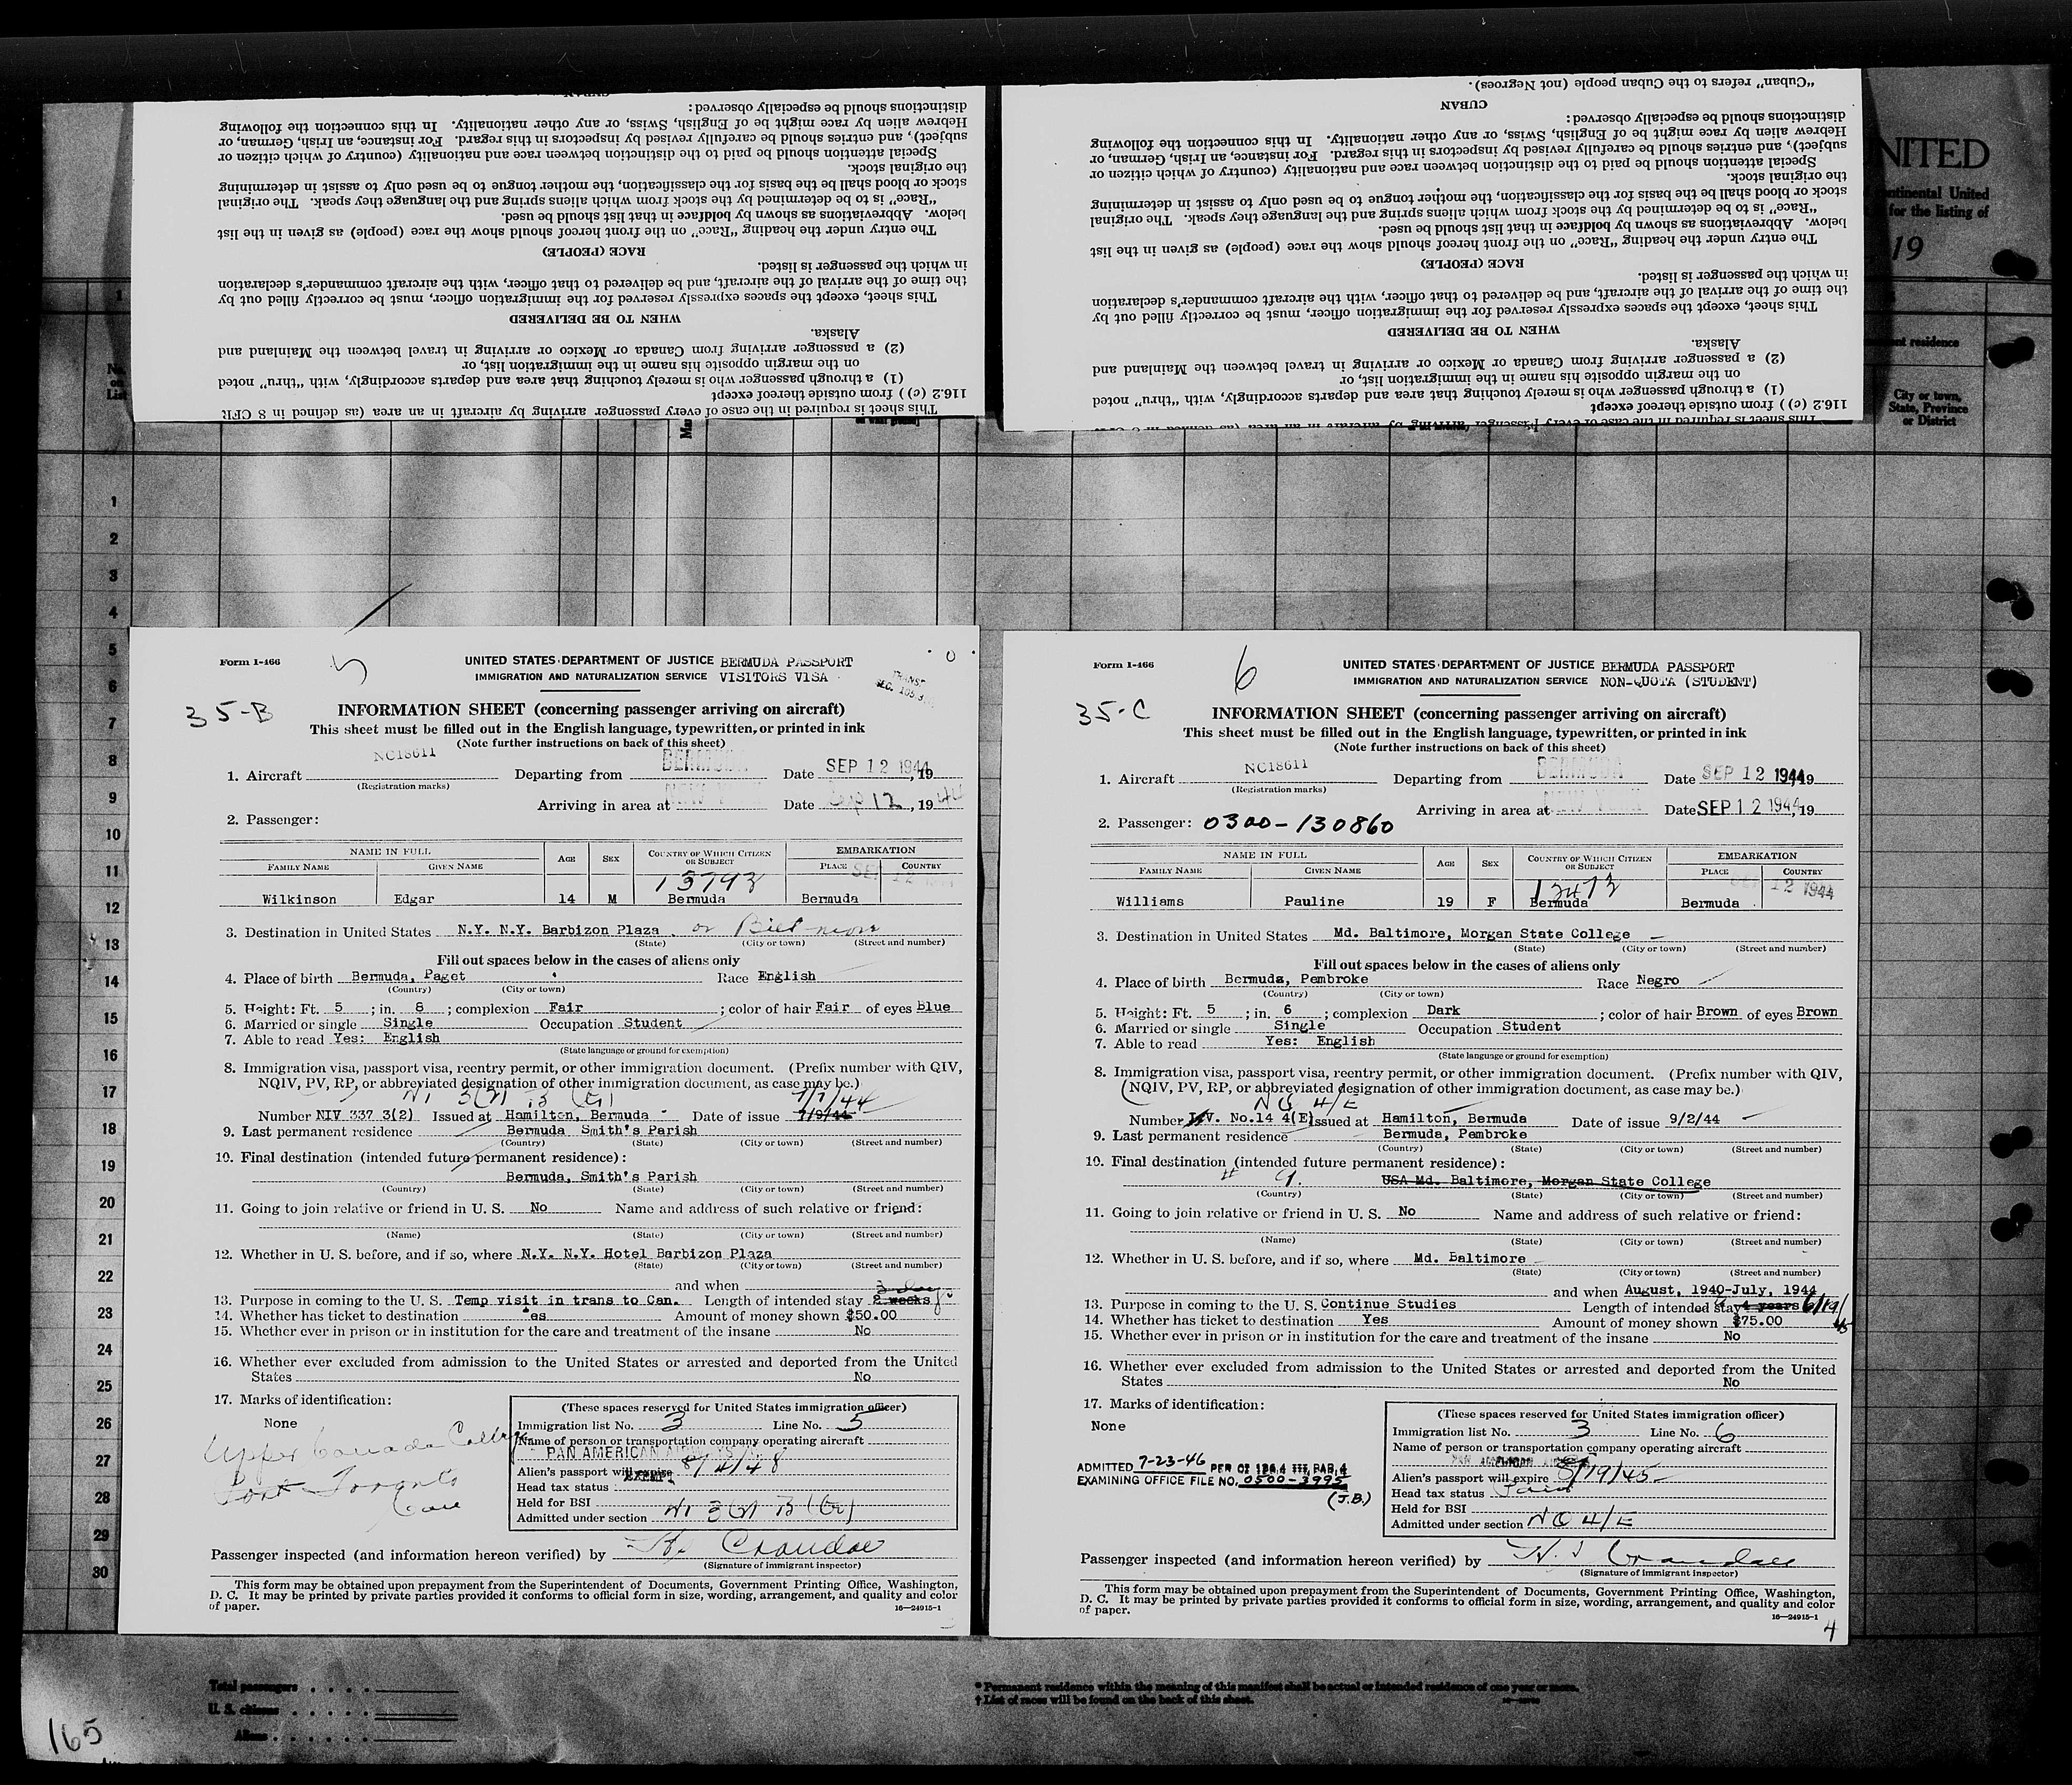 "Cuban" refers to the Cuban people (not Negroes).
CUBAN
distinctions should be especially observed:
Hebrew alien by race might be of English, Swiss, or any other nationality. In this connection the following
subject), and entries should be carefully revised by inspectors in this regard. For instance, an Irish, German, or
Special attention should be paid to the distinction between race and nationality (country of which citizen or
the original stock.
stock or blood shall be the basis for the classification, the mother tongue to be used only to assist in determining
"Race" is to be determined by the stock from which aliens spring and the language they speak. The original
below. Abbreviations as shown by boldface in that list should be used.
The entry under the heading "Race" on the front hereof should show the race (people) as given in the list
RACE (PEOPLE)
in which the passenger is listed.
the time of the arrival of the aircraft, and be delivered to that officer, with the aircraft commander's declaration
This sheet, except the spaces expressly reserved for the immigration officer, must be correctly filled out by
WHEN TO BE DELIVERED
Alaska.
(2) a passenger arriving from Canada or Mexico or arriving in travel between the Mainland and
on the margin opposite his name in the immigration list, or
(1) a through passenger who is merely touching that area and departs accordingly, with "thru" noted
116.2 (c) ) from outside thereof except
This sheet is required in the case of every passenger arriving by aircraft in an area (as defined in 8 CFR
NITED
ntinental United
for the listing of
19
nt residence
City or town,
State, Province
or District
1
2
3
4
5
6
7
8
9
10
11
12
13
14
15
16
17
18
19
20
21
22
23
24
25
26
27
28
29
30
Form I-466
5
UNITED STATES DEPARTMENT OF JUSTICE BERMUDA PASSPORT
IMMIGRATION AND NATURALIZATION SERVICE VISITORS VISA
35-B
INFORMATION SHEET (concerning passenger arriving on aircraft)
This sheet must be filled out in the English language, typewritten, or printed in ink
(Note further instructions on back of this sheet)
1. Aircraft NC18611 Departing from BERMUDA Date SEP 12 1944, 19
(Registration marks)
Arriving in area at NEW YORK Date Sep 12, 1944
2. Passenger:
NAME IN FULL AGE SEX COUNTRY OF WHICH CITIZEN OR SUBJECT EMBARKATION
FAMILY NAME GIVEN NAME PLACE COUNTRY
Wilkinson Edgar 14 M Bermuda Bermuda
3. Destination in United States N.Y. N.Y. Barbizon Plaza or Biltmore
(State) (City or town) (Street and number)
Fill out spaces below in the cases of aliens only
4. Place of birth Bermuda, Paget Race English
(Country) (City or town)
5. Height: Ft. 5 ; in. 8 ; complexion Fair ; color of hair Fair of eyes Blue
6. Married or single Single Occupation Student
7. Able to read Yes: English
(State language or ground for exemption)
8. Immigration visa, passport visa, reentry permit, or other immigration document. (Prefix number with QIV,
NQIV, PV, RP, or abbreviated designation of other immigration document, as case may be.)
7/7/44
Number NIV 337 3(2) Issued at Hamilton, Bermuda Date of issue 7/9/44
9. Last permanent residence Bermuda Smith's Parish
(Country) (State) (City or town) (Street and number)
10. Final destination (intended future permanent residence):
Bermuda, Smith's Parish
(Country) (State) (City or town) (Street and number)
11. Going to join relative or friend in U. S. No Name and address of such relative or friend:
(Name) (State) (City or town) (Street and number)
12. Whether in U. S. before, and if so, where N.Y. N.Y. Hotel Barbizon Plaza
(State) (City or town) (Street and number)
and when
3 days
13. Purpose in coming to the U. S. Temp visit in trans to Can. Length of intended stay 2 weeks
14. Whether has ticket to destination es Amount of money shown $50.00
15. Whether ever in prison or in institution for the care and treatment of the insane No
16. Whether ever excluded from admission to the United States or arrested and deported from the United
States No
17. Marks of identification:
None
Upper Canada College
Toronto
Can
(These spaces reserved for United States immigration officer)
Immigration list No. 3 Line No. 5
Name of person or transportation company operating aircraft
PAN AMERICAN AIRWAYS
Alien's passport will expire 8/4/48
Head tax status EXEMPT
Held for BSI
Admitted under section
Passenger inspected (and information hereon verified) by Crandall
(Signature of immigrant inspector)
This form may be obtained upon prepayment from the Superintendent of Documents, Government Printing Office, Washington,
D. C. It may be printed by private parties provided it conforms to official form in size, wording, arrangement, and quality and color
of paper.
16—24915-1
Form I-466
6
UNITED STATES DEPARTMENT OF JUSTICE BERMUDA PASSPORT
IMMIGRATION AND NATURALIZATION SERVICE NON-QUOTA (STUDENT)
35-C
INFORMATION SHEET (concerning passenger arriving on aircraft)
This sheet must be filled out in the English language, typewritten, or printed in ink
(Note further instructions on back of this sheet)
1. Aircraft NC18611 Departing from BERMUDA Date SEP 12 1944, 19
(Registration marks)
Arriving in area at NEW YORK Date SEP 12 1944, 19
2. Passenger: 0300-130860
NAME IN FULL AGE SEX COUNTRY OF WHICH CITIZEN OR SUBJECT EMBARKATION
FAMILY NAME GIVEN NAME PLACE COUNTRY
Williams Pauline 19 F Bermuda Bermuda
3. Destination in United States Md. Baltimore, Morgan State College
(State) (City or town) (Street and number)
Fill out spaces below in the cases of aliens only
4. Place of birth Bermuda, Pembroke Race Negro
(Country) (City or town)
5. Height: Ft. 5 ; in. 6 ; complexion Dark ; color of hair Brown of eyes Brown
6. Married or single Single Occupation Student
7. Able to read Yes: English
(State language or ground for exemption)
8. Immigration visa, passport visa, reentry permit, or other immigration document. (Prefix number with QIV,
NQIV, PV, RP, or abbreviated designation of other immigration document, as case may be.)
NQ 4/E
Number I.V. No.14 4(E) Issued at Hamilton, Bermuda Date of issue 9/2/44
9. Last permanent residence Bermuda, Pembroke
(Country) (State) (City or town) (Street and number)
10. Final destination (intended future permanent residence):
USA Md. Baltimore, Morgan State College
(Country) (State) (City or town) (Street and number)
11. Going to join relative or friend in U. S. No Name and address of such relative or friend:
(Name) (State) (City or town) (Street and number)
12. Whether in U. S. before, and if so, where Md. Baltimore
(State) (City or town) (Street and number)
and when August, 1940-July, 1944
13. Purpose in coming to the U. S. Continue Studies Length of intended stay 4 years 6/19/45
14. Whether has ticket to destination Yes Amount of money shown $75.00
15. Whether ever in prison or in institution for the care and treatment of the insane No
16. Whether ever excluded from admission to the United States or arrested and deported from the United
States No
17. Marks of identification:
None
ADMITTED 7-23-46 PER
EXAMINING OFFICE FILE NO. 0500-3995
(J.B.)
(These spaces reserved for United States immigration officer)
Immigration list No. 3 Line No. 6
Name of person or transportation company operating aircraft
PAN AMERICAN AIRWAYS
Alien's passport will expire 8/19/45
Head tax status Paid
Held for BSI
Admitted under section NQ 4/E
Passenger inspected (and information hereon verified) by Crandall
(Signature of immigrant inspector)
This form may be obtained upon prepayment from the Superintendent of Documents, Government Printing Office, Washington,
D. C. It may be printed by private parties provided it conforms to official form in size, wording, arrangement, and quality and color
of paper.
16—24915-1
4
Total passengers
U. S. citizens
Aliens
* Permanent residence within the meaning of this manifest shall be actual or intended residence of one year or more.
† List of races will be found on the back of this sheet.
165